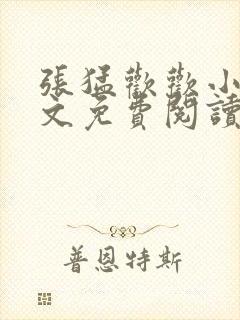 張猛歡歡小
文免費閱讀
普恩特斯